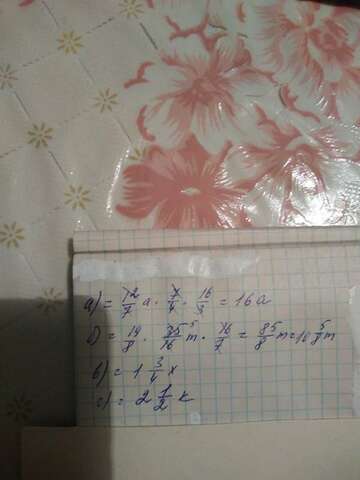 а) = 12/7 a · 7/4 · 16/3 = 16a
б) = 19/8 · 35/16 m · 16/7 = 85/8 m = 10 5/8 m
в) = 1 3/4 x
г) = 2 1/2 k